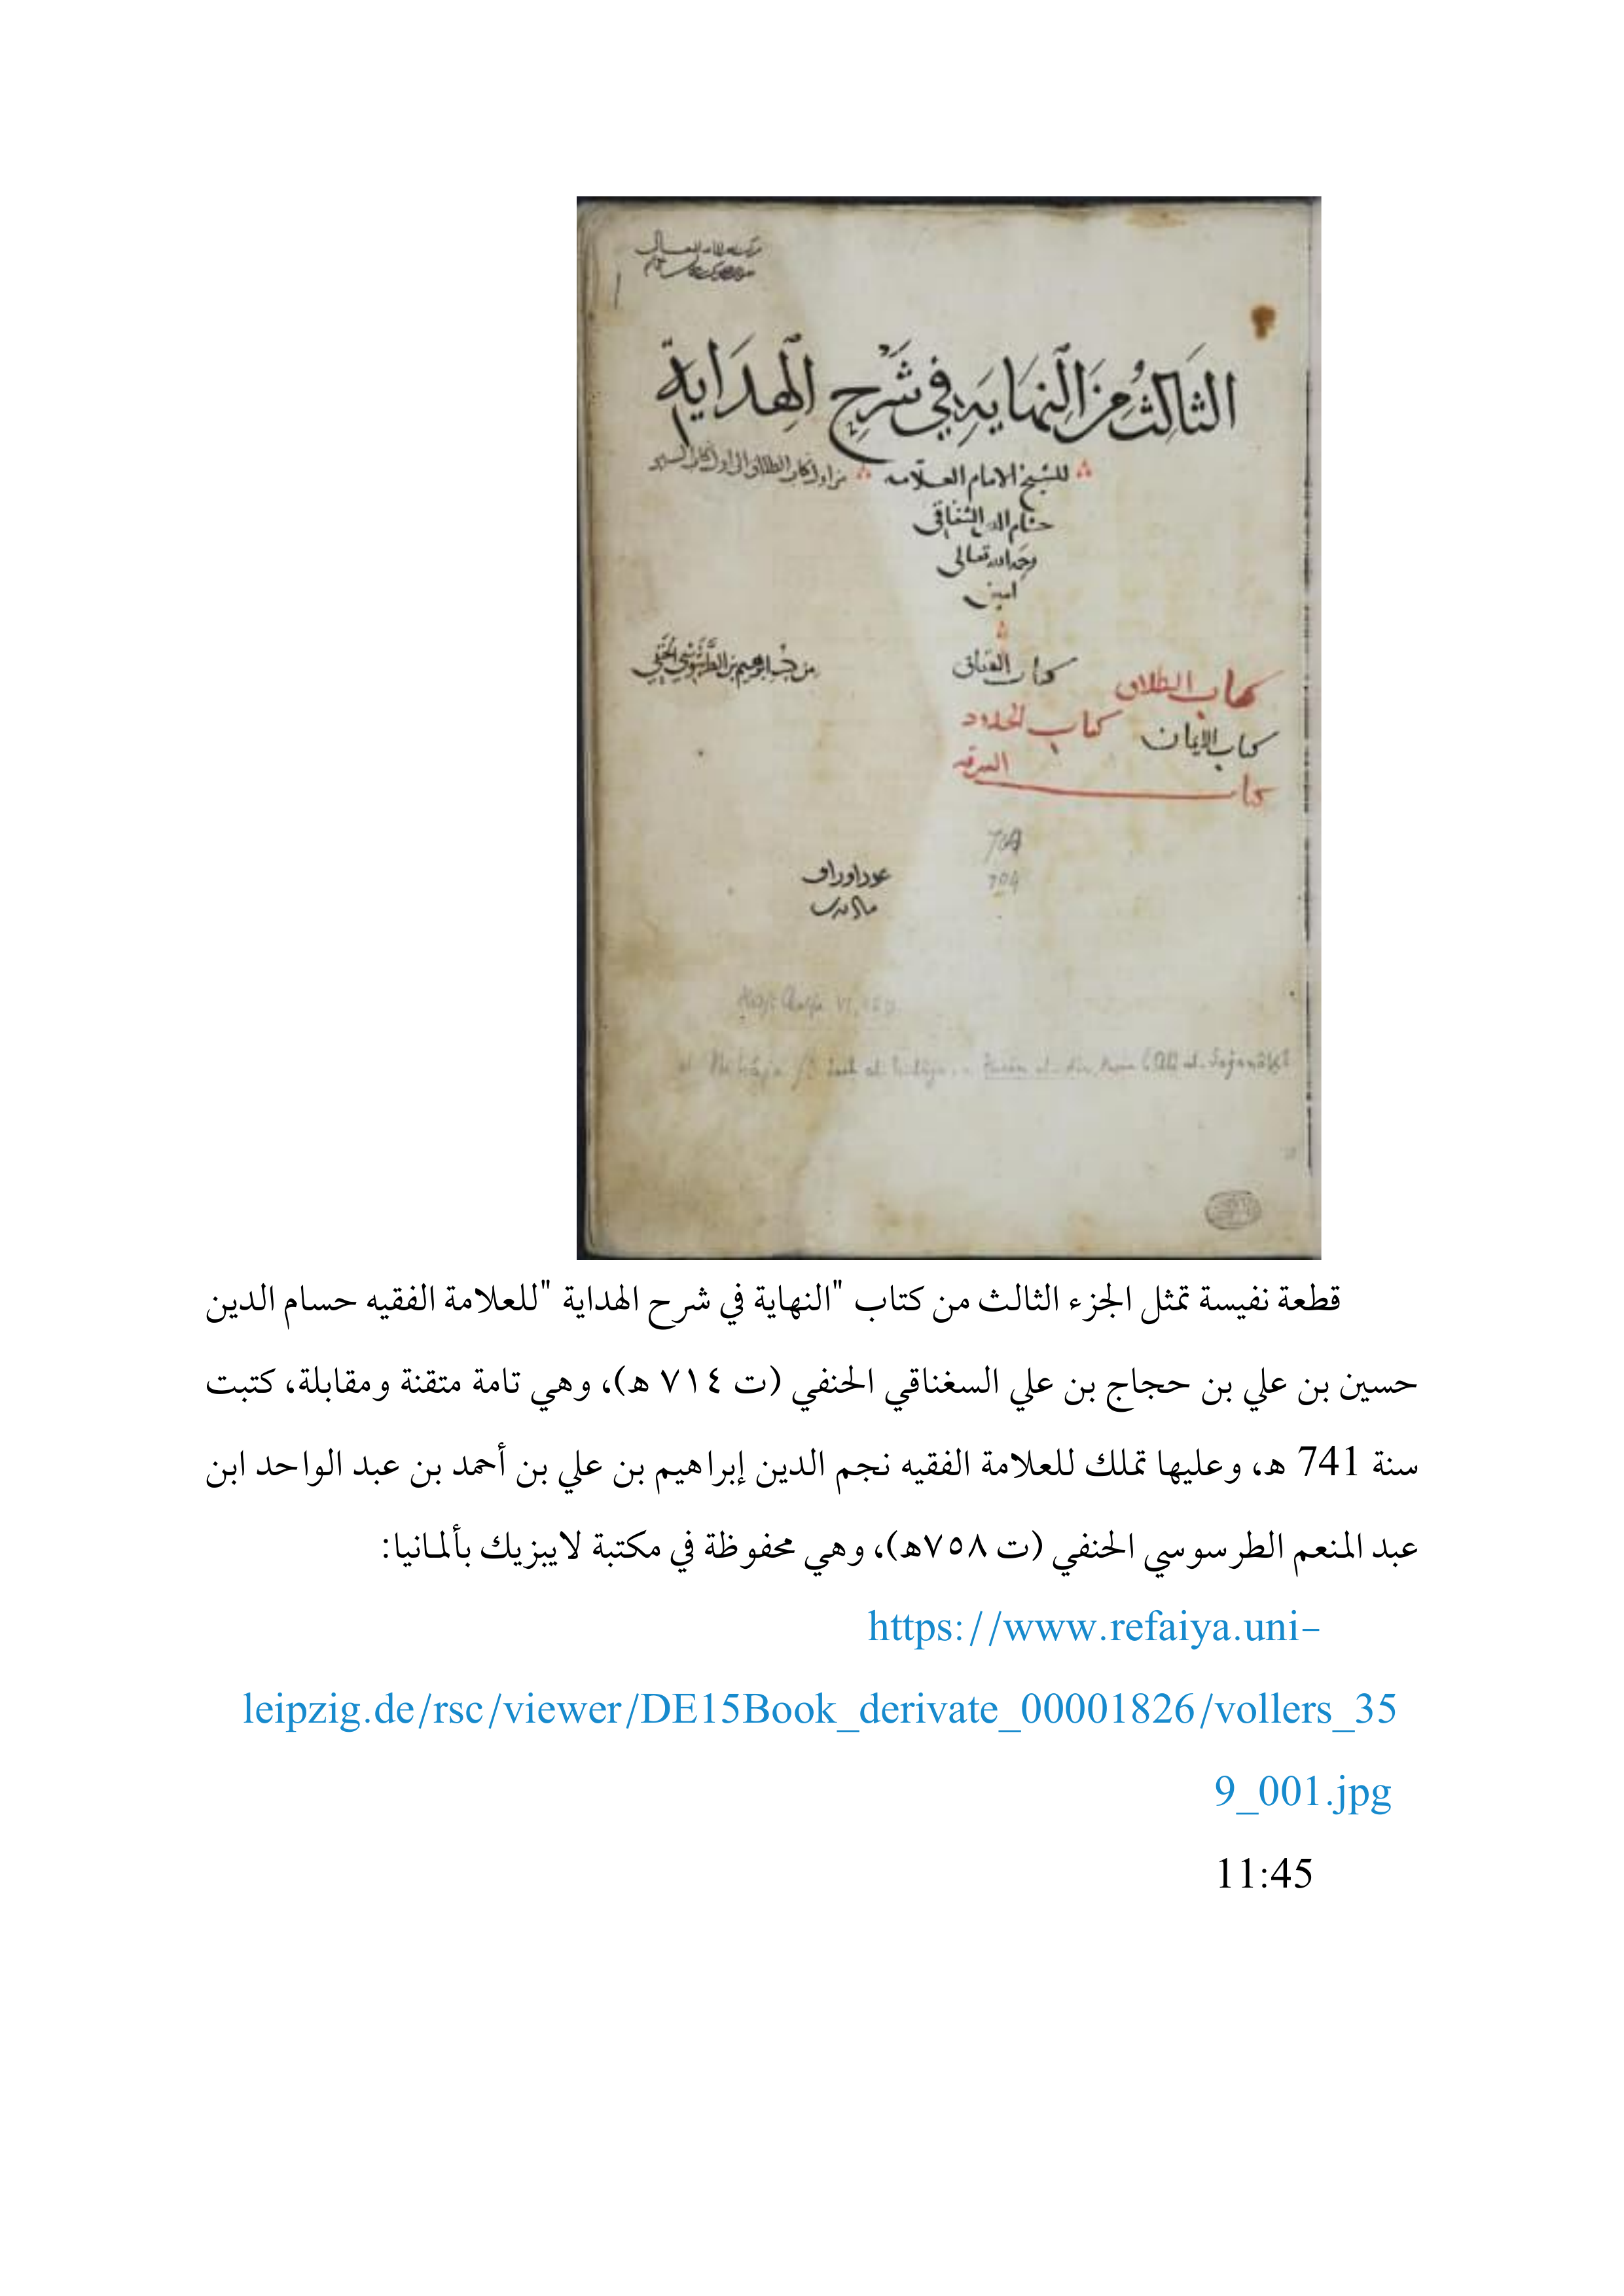 الثالث من النهاية في شرح الهداية
للشيخ الامام العلامه
من اول كتاب الطلاق الى اول كتاب السير
حسام الدين السغناقي
رحمه الله تعالى
امين
من كتب ابرهيم بن الطرسوسي الحنفي
كتاب الطلاق
كتاب العتاق
كتاب الايمان
كتاب الحدود
كتاب السرقه
704
704
عدد اوراق
Hadji Chalfa VI,
قطعة نفيسة تمثل الجزء الثالث من كتاب "النهاية في شرح الهداية "للعلامة الفقيه حسام الدين
حسين بن علي بن حجاج بن علي السغناقي الحنفي (ت ٧١٤ هـ)، وهي تامة متقنة ومقابلة، كتبت
سنة 741 هـ، وعليها تملك للعلامة الفقيه نجم الدين إبراهيم بن علي بن أحمد بن عبد الواحد ابن
عبد المنعم الطرسوسي الحنفي (ت ٧٥٨هـ)، وهي محفوظة في مكتبة لايبزيك بألمانيا:
https://www.refaiya.uni-
leipzig.de/rsc/viewer/DE15Book_derivate_00001826/vollers_35
9_001.jpg
11:45